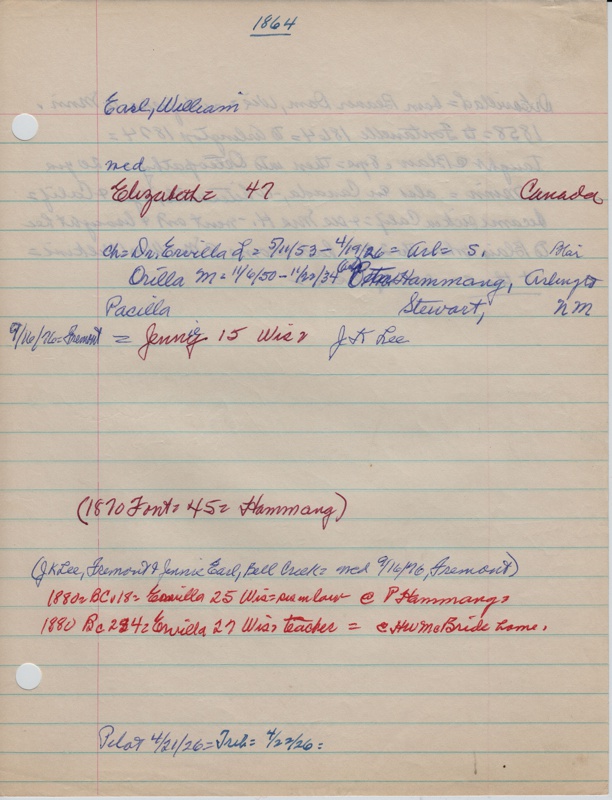 1864
Earl, William
med
Elizabeth = 47 Canada
ch = Dr. Ervilla L = 5/11/53 - 4/19/26 = Arl = S. Blair
Orilla M = 11/6/50 - 11/22/34 Peter Hammang, Arlingt
Pacilla Stewart, NM
9/16/76 = Fremont = Jennie 15 Wis = J K Lee
(1870 Font = 45 = Hammang)
(J K Lee, Fremont & Jennie Earl, Bell Creek = med 9/16/76, Fremont)
1880 = BC 18 = Ervilla 25 Wis = @ P Hammang =
1880 BC 234 = Ervilla 27 Wis = teacher = @ HW McBride home.
Pilot 4/21/26 = Trib = 4/22/26 =